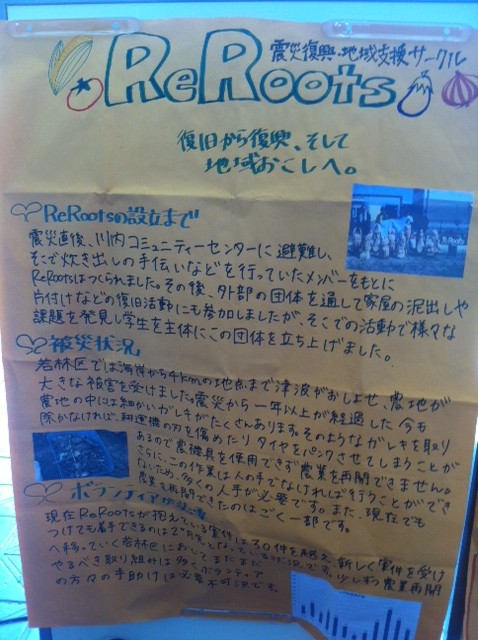 震災復興・地域支援サークル
ReRoots
復旧から復興、そして
地域おこしへ。
ReRootsの設立まで
震災直後、川内コミュニティーセンターに避難し、
そこで炊き出しの手伝いなどを行っていたメンバーをもとに
ReRootsはつくられました。その後、外部の団体を通して家屋の泥出しや
片付けなどの復旧活動にも参加しましたが、そこでの活動で様々な
課題を発見し学生を主体にこの団体を立ち上げました。
被災状況
若林区では海岸から4kmの地点まで津波がおしよせ、農地が
大きな被害を受けました。震災から一年以上が経過した今も
農地の中には細かいガレキがたくさんあります。そのようなガレキを取り
除かなければ、耕運機の刃を傷めたりタイヤをパンクさせてしまうことが
あるので農機具を使用できず農業を再開できません。
さらに、この作業は人の手でなければ行うことができ
ないため、多くの人手が必要です。また、現在でも
農業を再開できたのはごく一部です。
ボランティアの
現在ReRootsが抱えている案件は30件を超え、新しく案件を受け
つけても着手できるのは2
へ移っていく若林区においてもまだまだ
やるべき取り組みは多くボランティア
の方々の手助けは必要不可欠です。